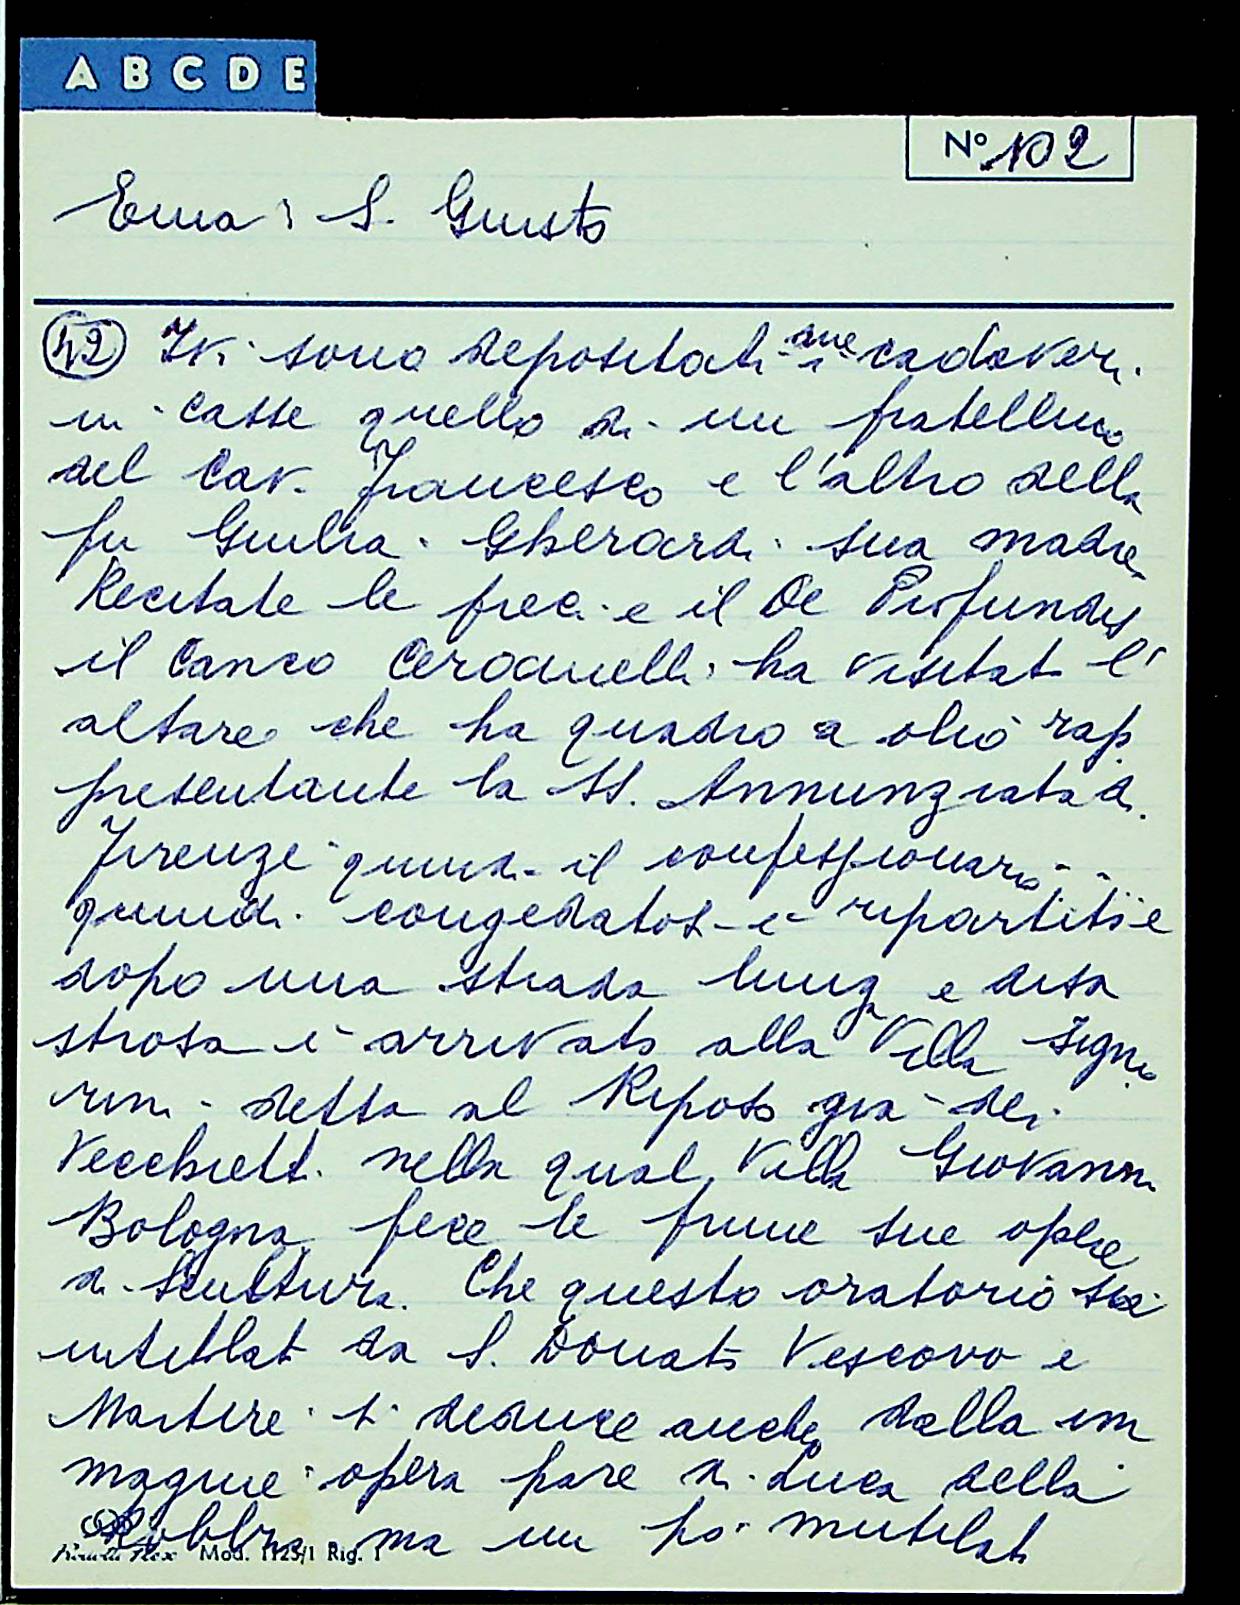 A B C D E
N° 102
Ema: S. Giusto
42 Ivi sono depositati due cadaveri
in casse quello di un fratellino
del Cav. Francesco e l'altro della
fu Giulia Gherardi sua madre
Recitate le preci e il De Profundis
il Canco ha visitato l'
altare che ha quadro a olio rap
presentante la SS. Annunziata di
Firenze quindi il confessionario
quindi congedatosi è ripartito e
dopo una strada lunga e disa
strosa è arrivato alla Villa Signo
rini detta al Riposo già dei
Vecchietti nella qual Villa Giovanni
Bologna fece le prime sue opere
di Scultura. Che questo oratorio sia
intitolato da S. Donato Vescovo e
Martire si deduce anche dalla im
magine opera pare di Luca della
Robbia ma un po' mutilata
Mod. 1125/1 Rig. 1